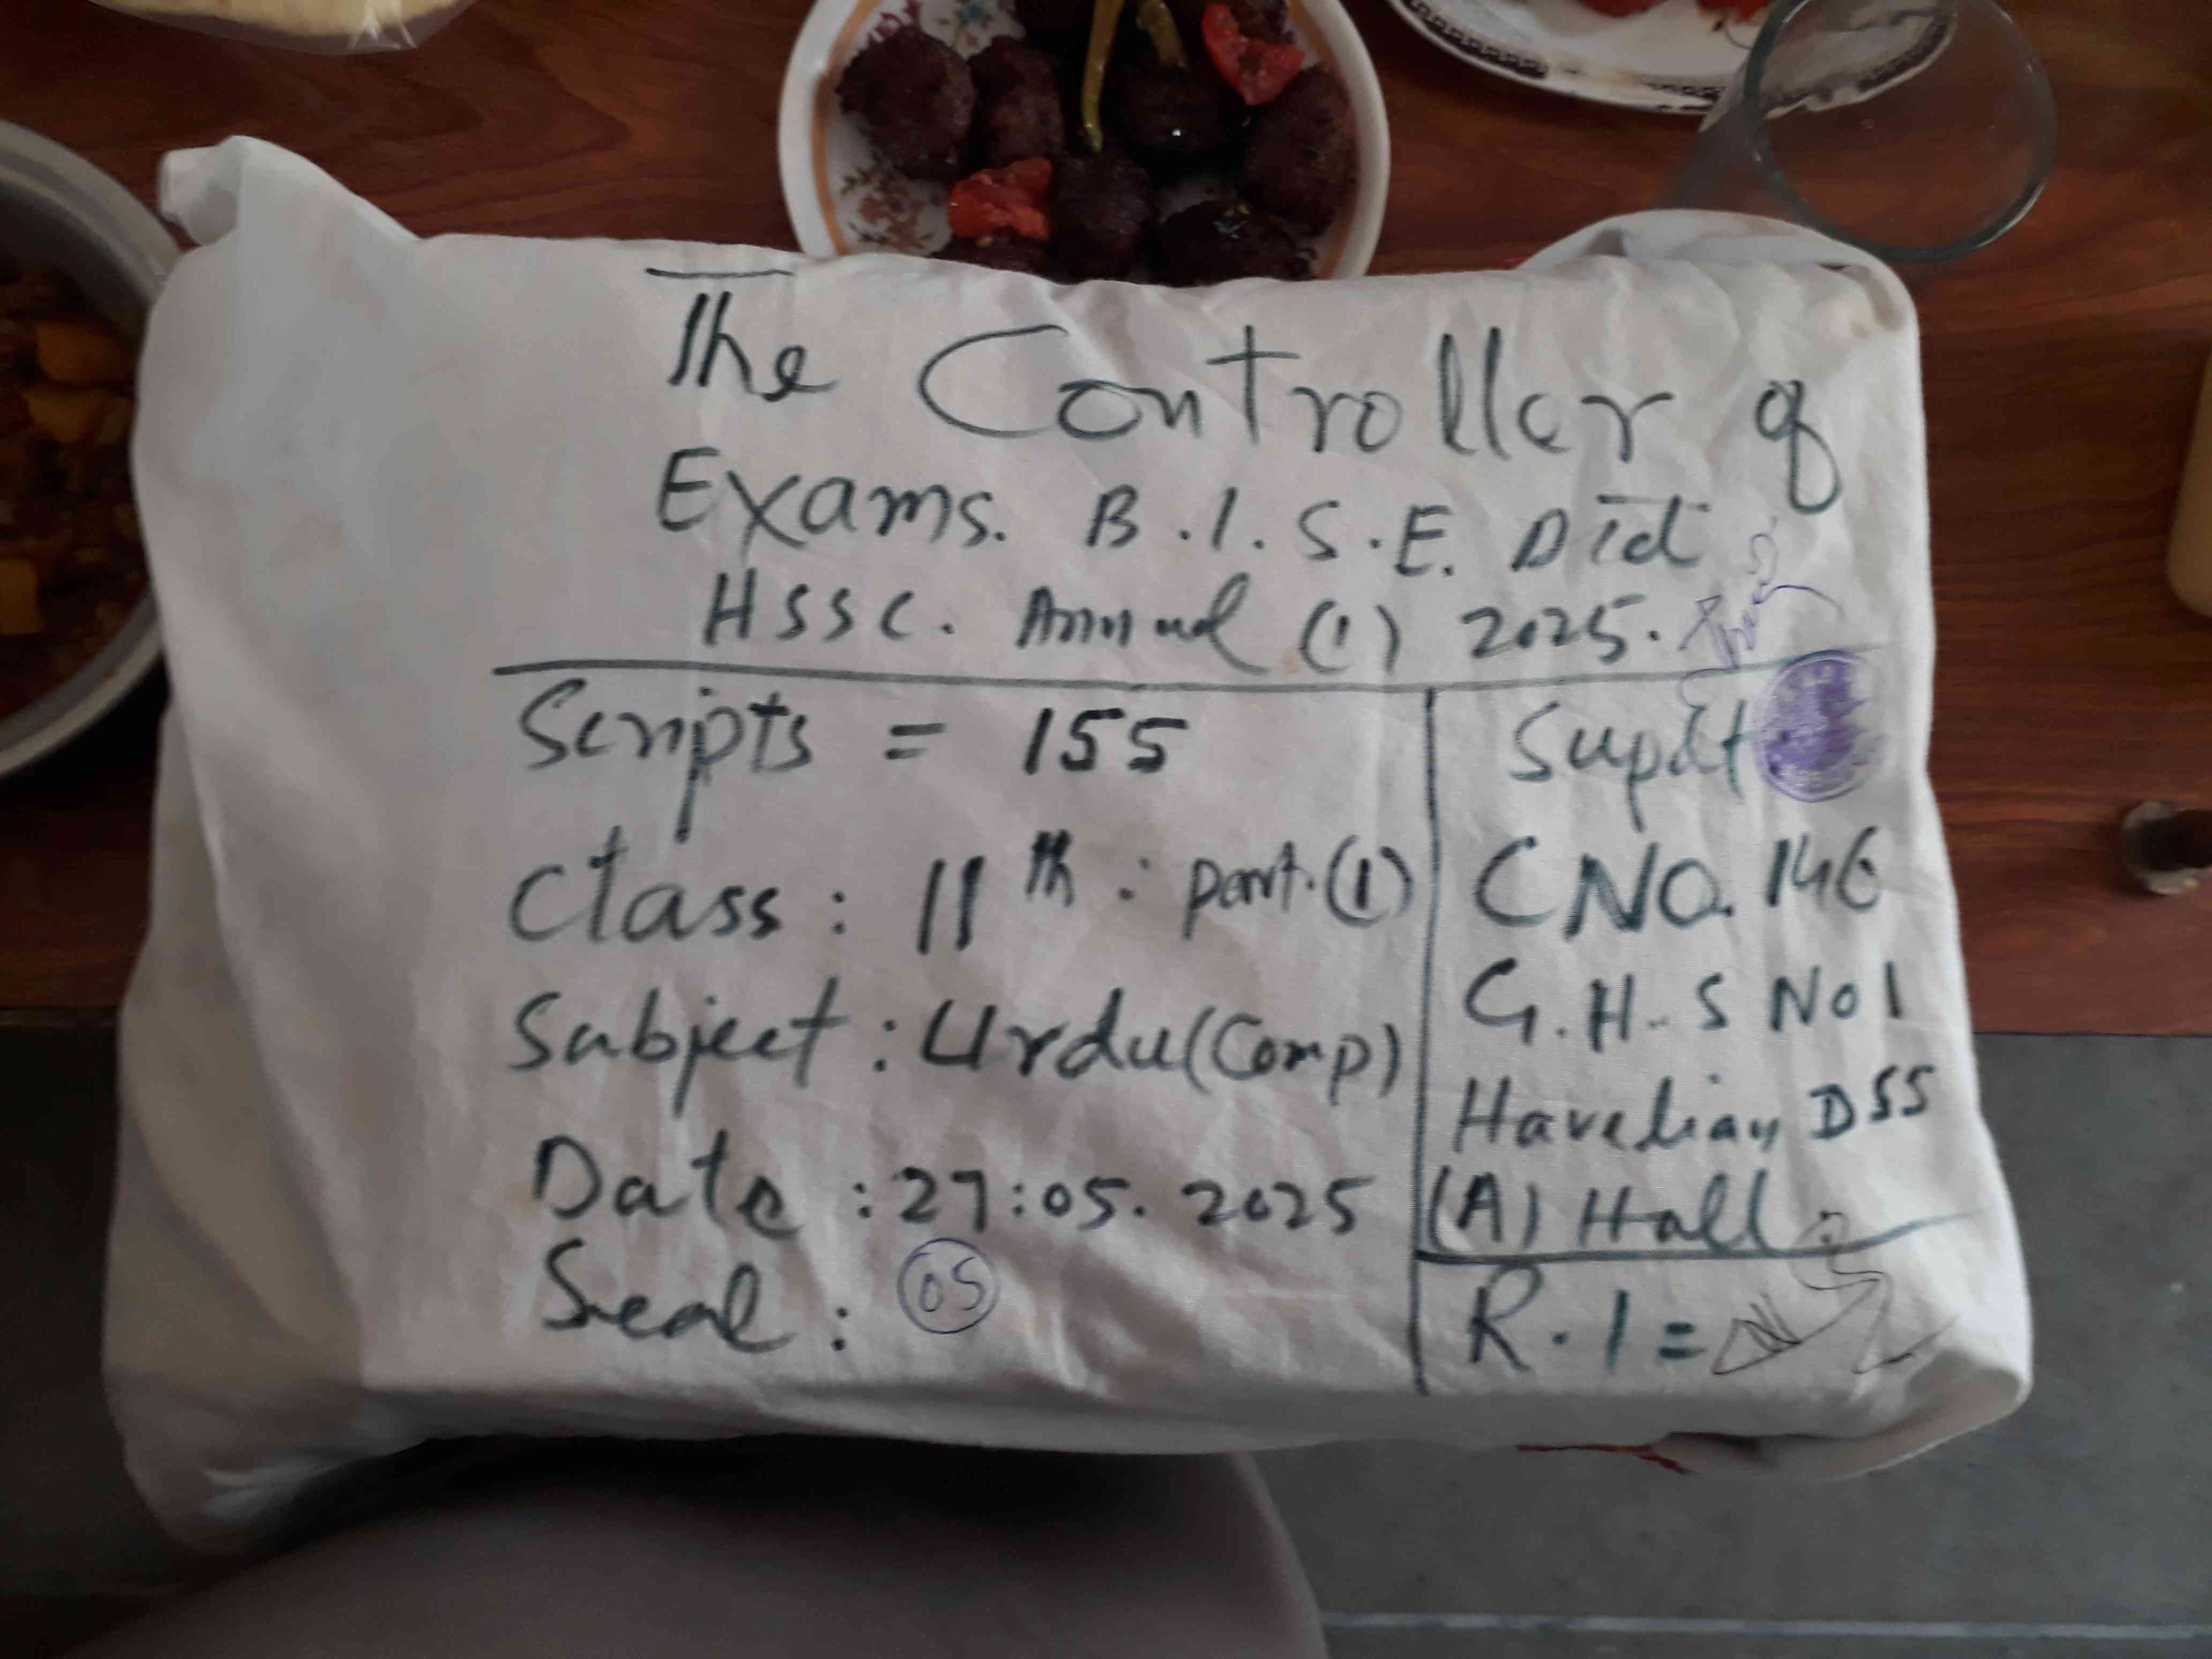 The Controller of
Exams. B.I.S.E. Atd
HSSC. Annual (1) 2025.
Scripts = 155
Class : 11th : part.(1)
Subject : Urdu (Comp)
Date : 27:05.2025
Seal : 05
Supdt
CNO. 146
G.H.S No 1
Havelian DSS
(A) Hall
R.I =